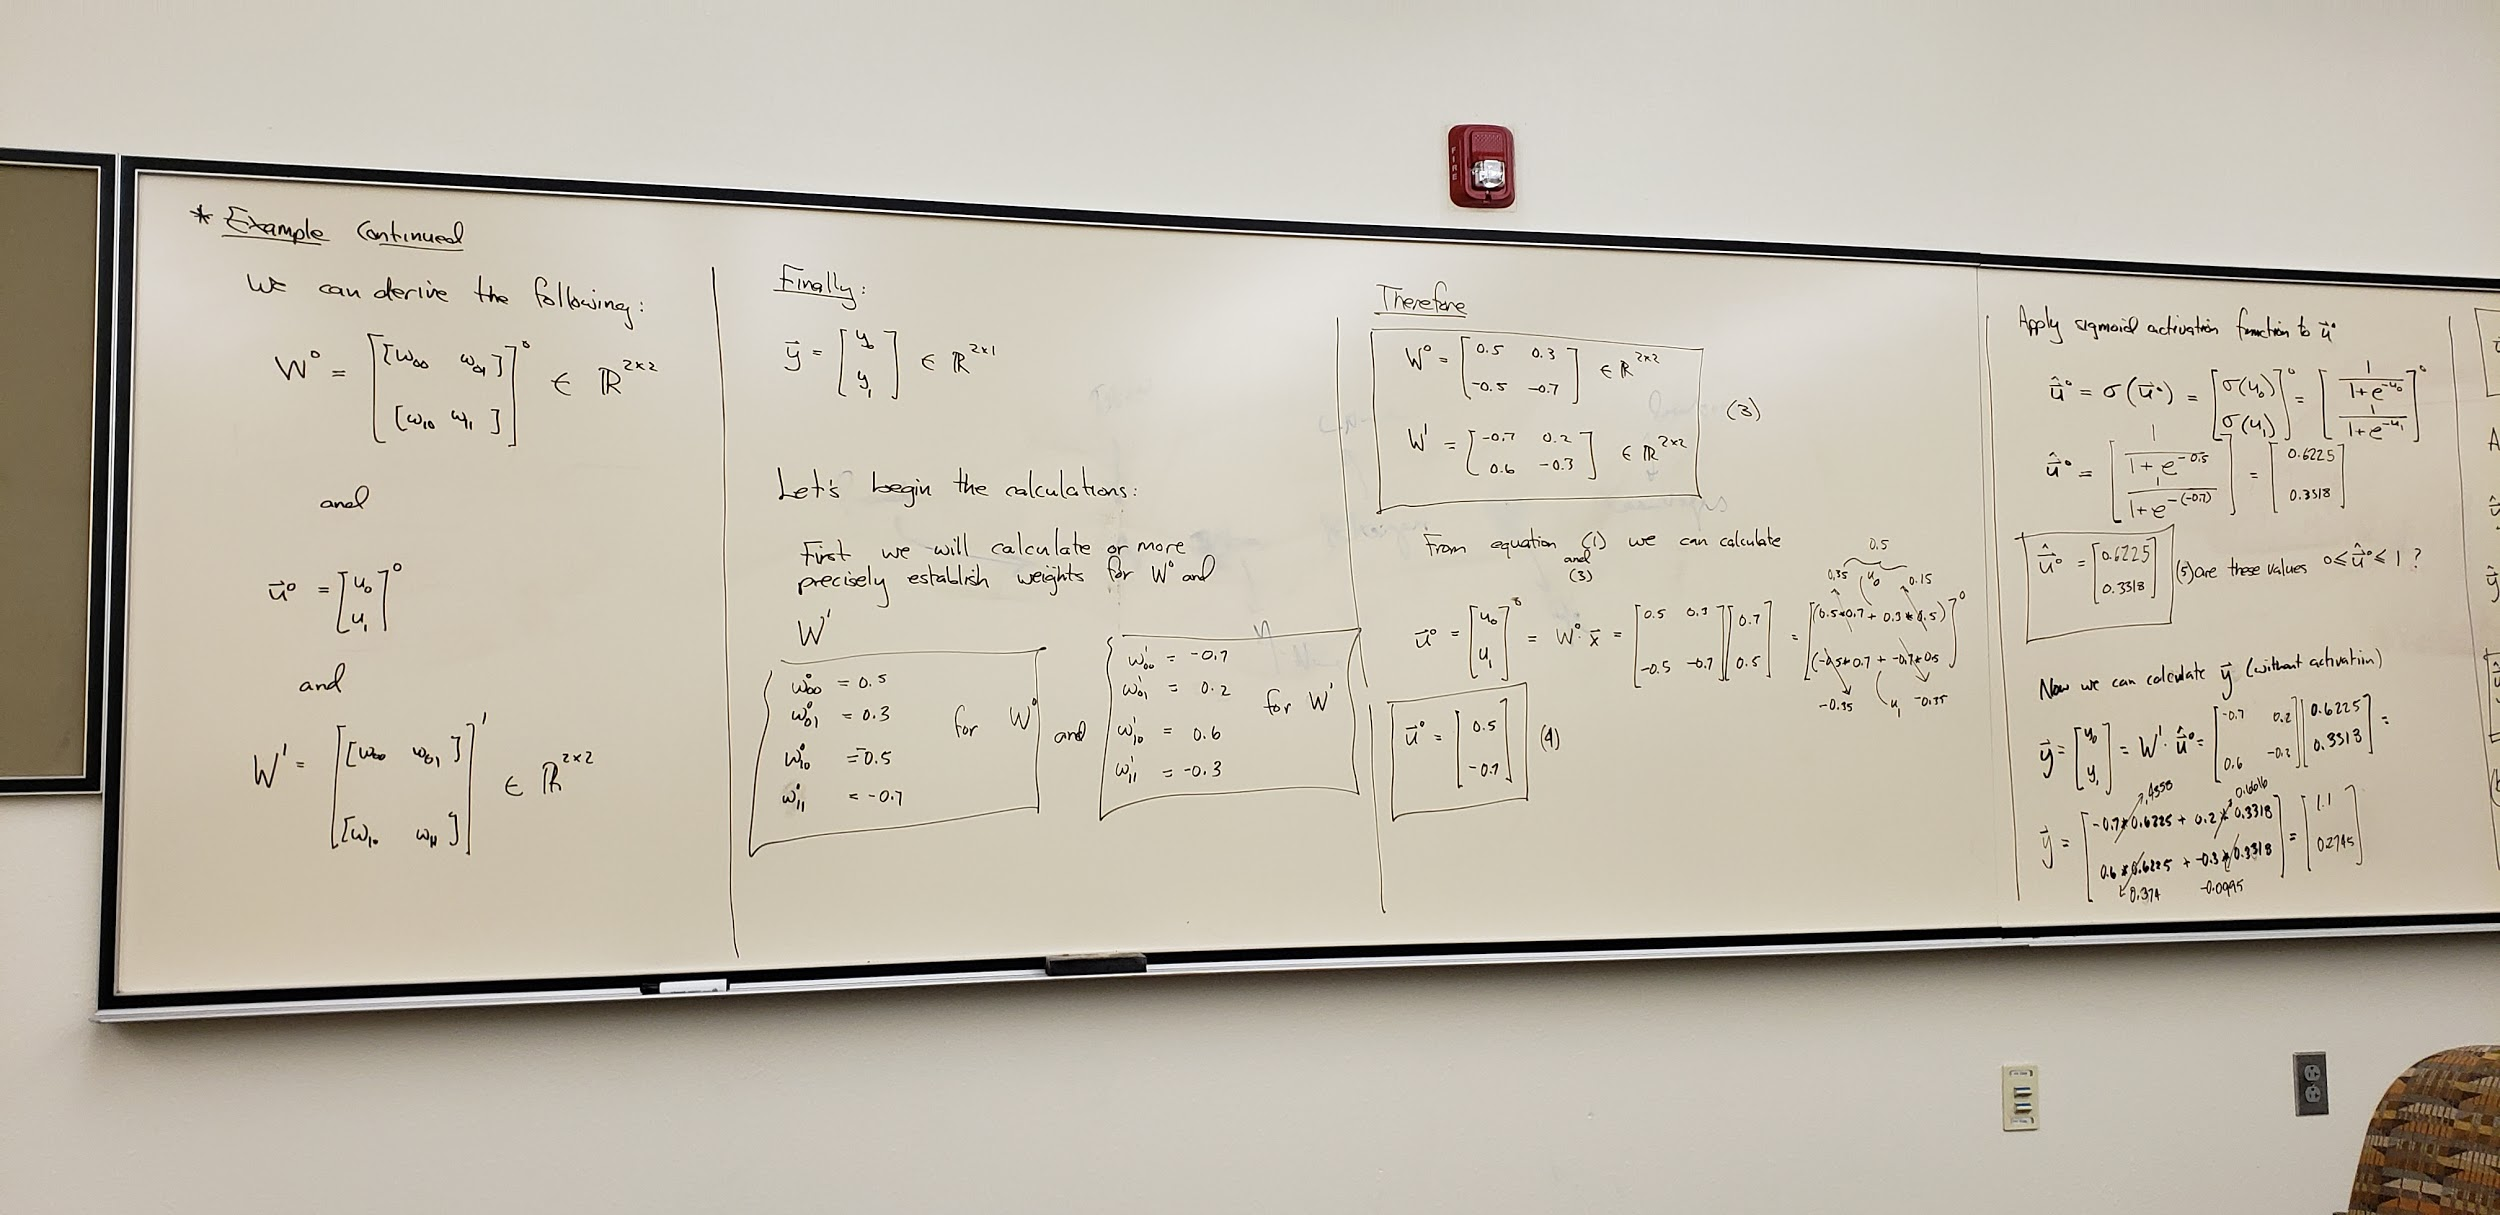 * Example Continued
We can derive the following:
W⁰ = [[w₀₀ w₀₁] [w₁₀ w₁₁]]⁰ ∈ ℝ²ˣ²
and
u⃗⁰ = [u₀ u₁]⁰
and
W¹ = [[w₀₀ w₀₁] [w₁₀ w₁₁]]¹ ∈ ℝ²ˣ²
Finally:
y⃗ = [y₀ y₁] ∈ ℝ²ˣ¹
Let's begin the calculations:
First we will calculate or more
precisely establish weights for W⁰ and
W¹
w⁰₀₀ = 0.5
w⁰₀₁ = 0.3
w⁰₁₀ = -0.5
w⁰₁₁ = -0.7
for W⁰
and
w¹₀₀ = -0.7
w¹₀₁ = 0.2
w¹₁₀ = 0.6
w¹₁₁ = -0.3
for W¹
Therefore
W⁰ = [0.5 0.3 -0.5 -0.7] ∈ ℝ²ˣ²
(3)
W¹ = [-0.7 0.2 0.6 -0.3] ∈ ℝ²ˣ²
From equation (1) and (3) we can calculate
0.5
0.35 u₀ 0.15
u⃗⁰ = [u₀ u₁]⁰ = W⁰·x⃗ = [0.5 0.3 -0.5 -0.7][0.7 0.5] = [(0.5*0.7 + 0.3*0.5) (-0.5*0.7 + -0.7*0.5)]⁰
-0.35 u₁ -0.35
u⃗⁰ = [0.5 -0.7] (4)
Apply sigmoid activation function to u⃗⁰
û⃗⁰ = σ(u⃗⁰) = [σ(u₀) σ(u₁)]⁰ = [1/(1+e^-u₀) 1/(1+e^-u₁)]⁰
û⃗⁰ = [1/(1+e^-0.5) 1/(1+e^-(-0.7))] = [0.6225 0.3318]
û⃗⁰ = [0.6225 0.3318] (5) are these values 0 ≤ û⃗⁰ ≤ 1 ?
Now we can calculate y⃗ (without activation)
y⃗ = [y₀ y₁] = W¹·û⃗⁰ = [-0.7 0.2 0.6 -0.3][0.6225 0.3313] =
y⃗ = [-0.7*0.6225 + 0.2*0.3318 0.6*0.6225 + -0.3*0.3318] = [1.1 0.2745]
0.374 -0.0995